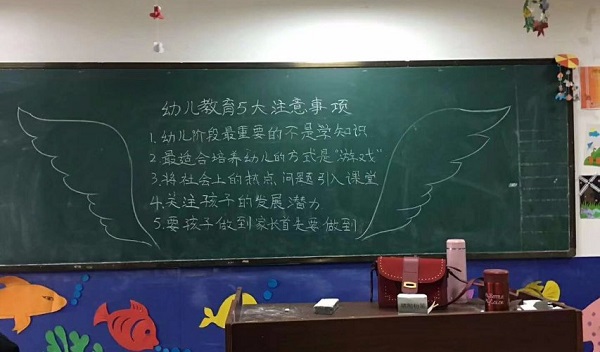 幼儿教育5大注意事项
1.幼儿阶段最重要的不是学知识
2.最适合培养幼儿的方式是"游戏"
3.将社会上的热点问题引入课堂
4.关注孩子的发展潜力
5.要孩子做到家长首先要做到